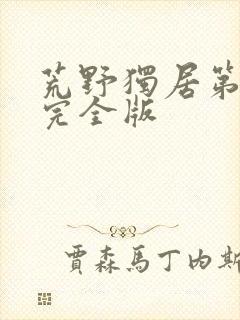 荒野獨居第
完全版
賈森馬丁內斯